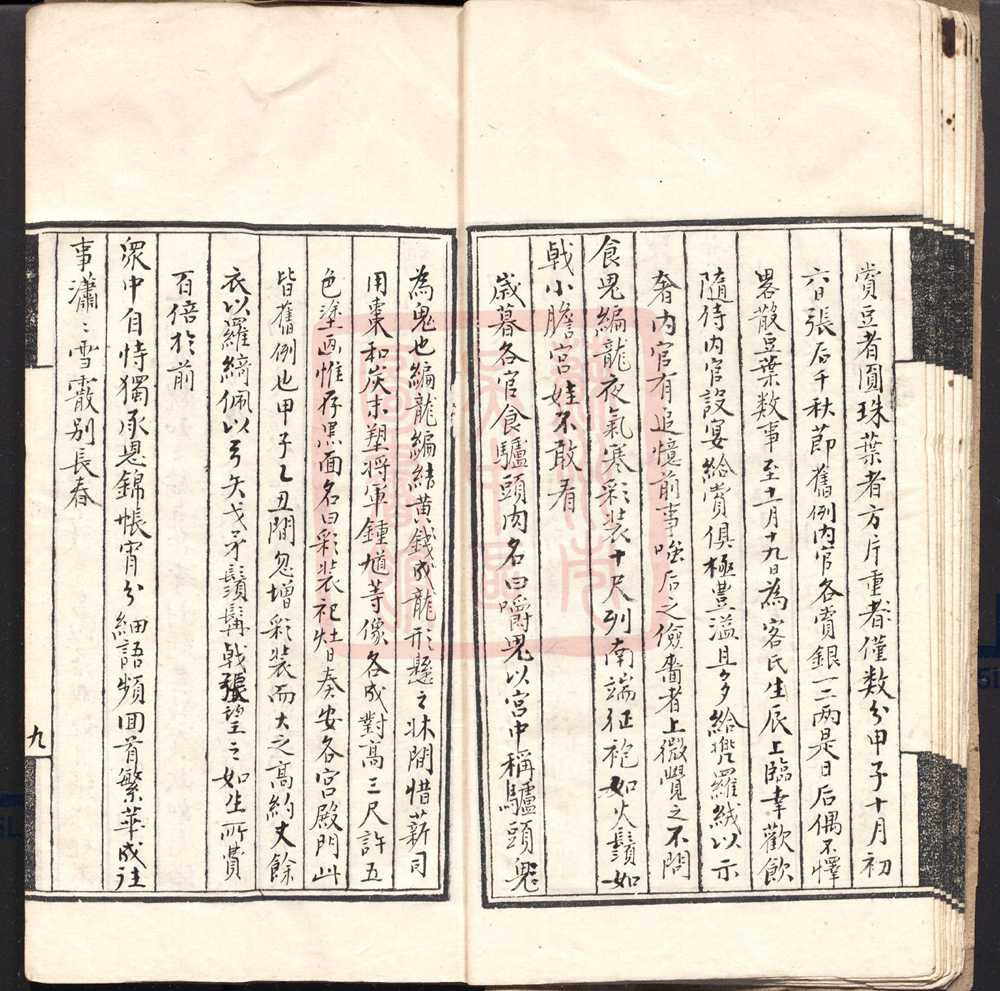 賞豆者圓珠葉者方片重者僅數分甲子十月初
六日張后千秋節舊例內官各賞銀一二兩是日后偶不懌
畧散豆葉數事至十一月十九日為客氏生辰上臨幸歡飲
隨侍內官設宴給賞俱極豊溢且多給𢹂羅絨以示
奢內官有追憶前事嗤后之儉嗇者上微覺之不問
食鬼編龍夜氣寒彩裝十尺列南端征袍如火鬚如
戟小膽宮娃不敢看
歲暮各官食驢頭肉名曰嚼鬼以宮中稱驢頭鬼
為鬼也編龍編結黃錢成龍形懸之牀間惜薪司
用棗和炭末塑將軍鍾馗等像各成對高三尺許五
色塗画惟存黑面名曰彩裝祀灶日奏安各宮殿門此
皆舊例也甲子乙丑間忽增彩裝而大之高約丈餘
衣以羅綺佩以弓矢戈矛鬚髯戟張望之如生所費
百倍於前
眾中自恃獨承恩錦帳宵分細語頻回首繁華成往
事瀟〻雪霰別長春
九